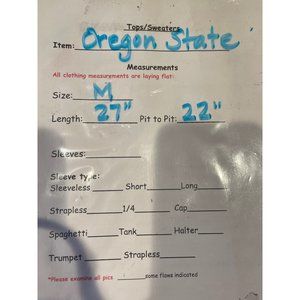 Tops/Sweaters
Item: Oregon State
Measurements
All clothing measurements are laying flat:
Size: M
Length: 27" Pit to Pit: 22"
Sleeves:
Sleeve type:
Sleeveless Short Long
Strapless 1/4 Cap
Spaghetti Tank Halter
Trumpet Strapless
*Please examine all pics some flaws indicated